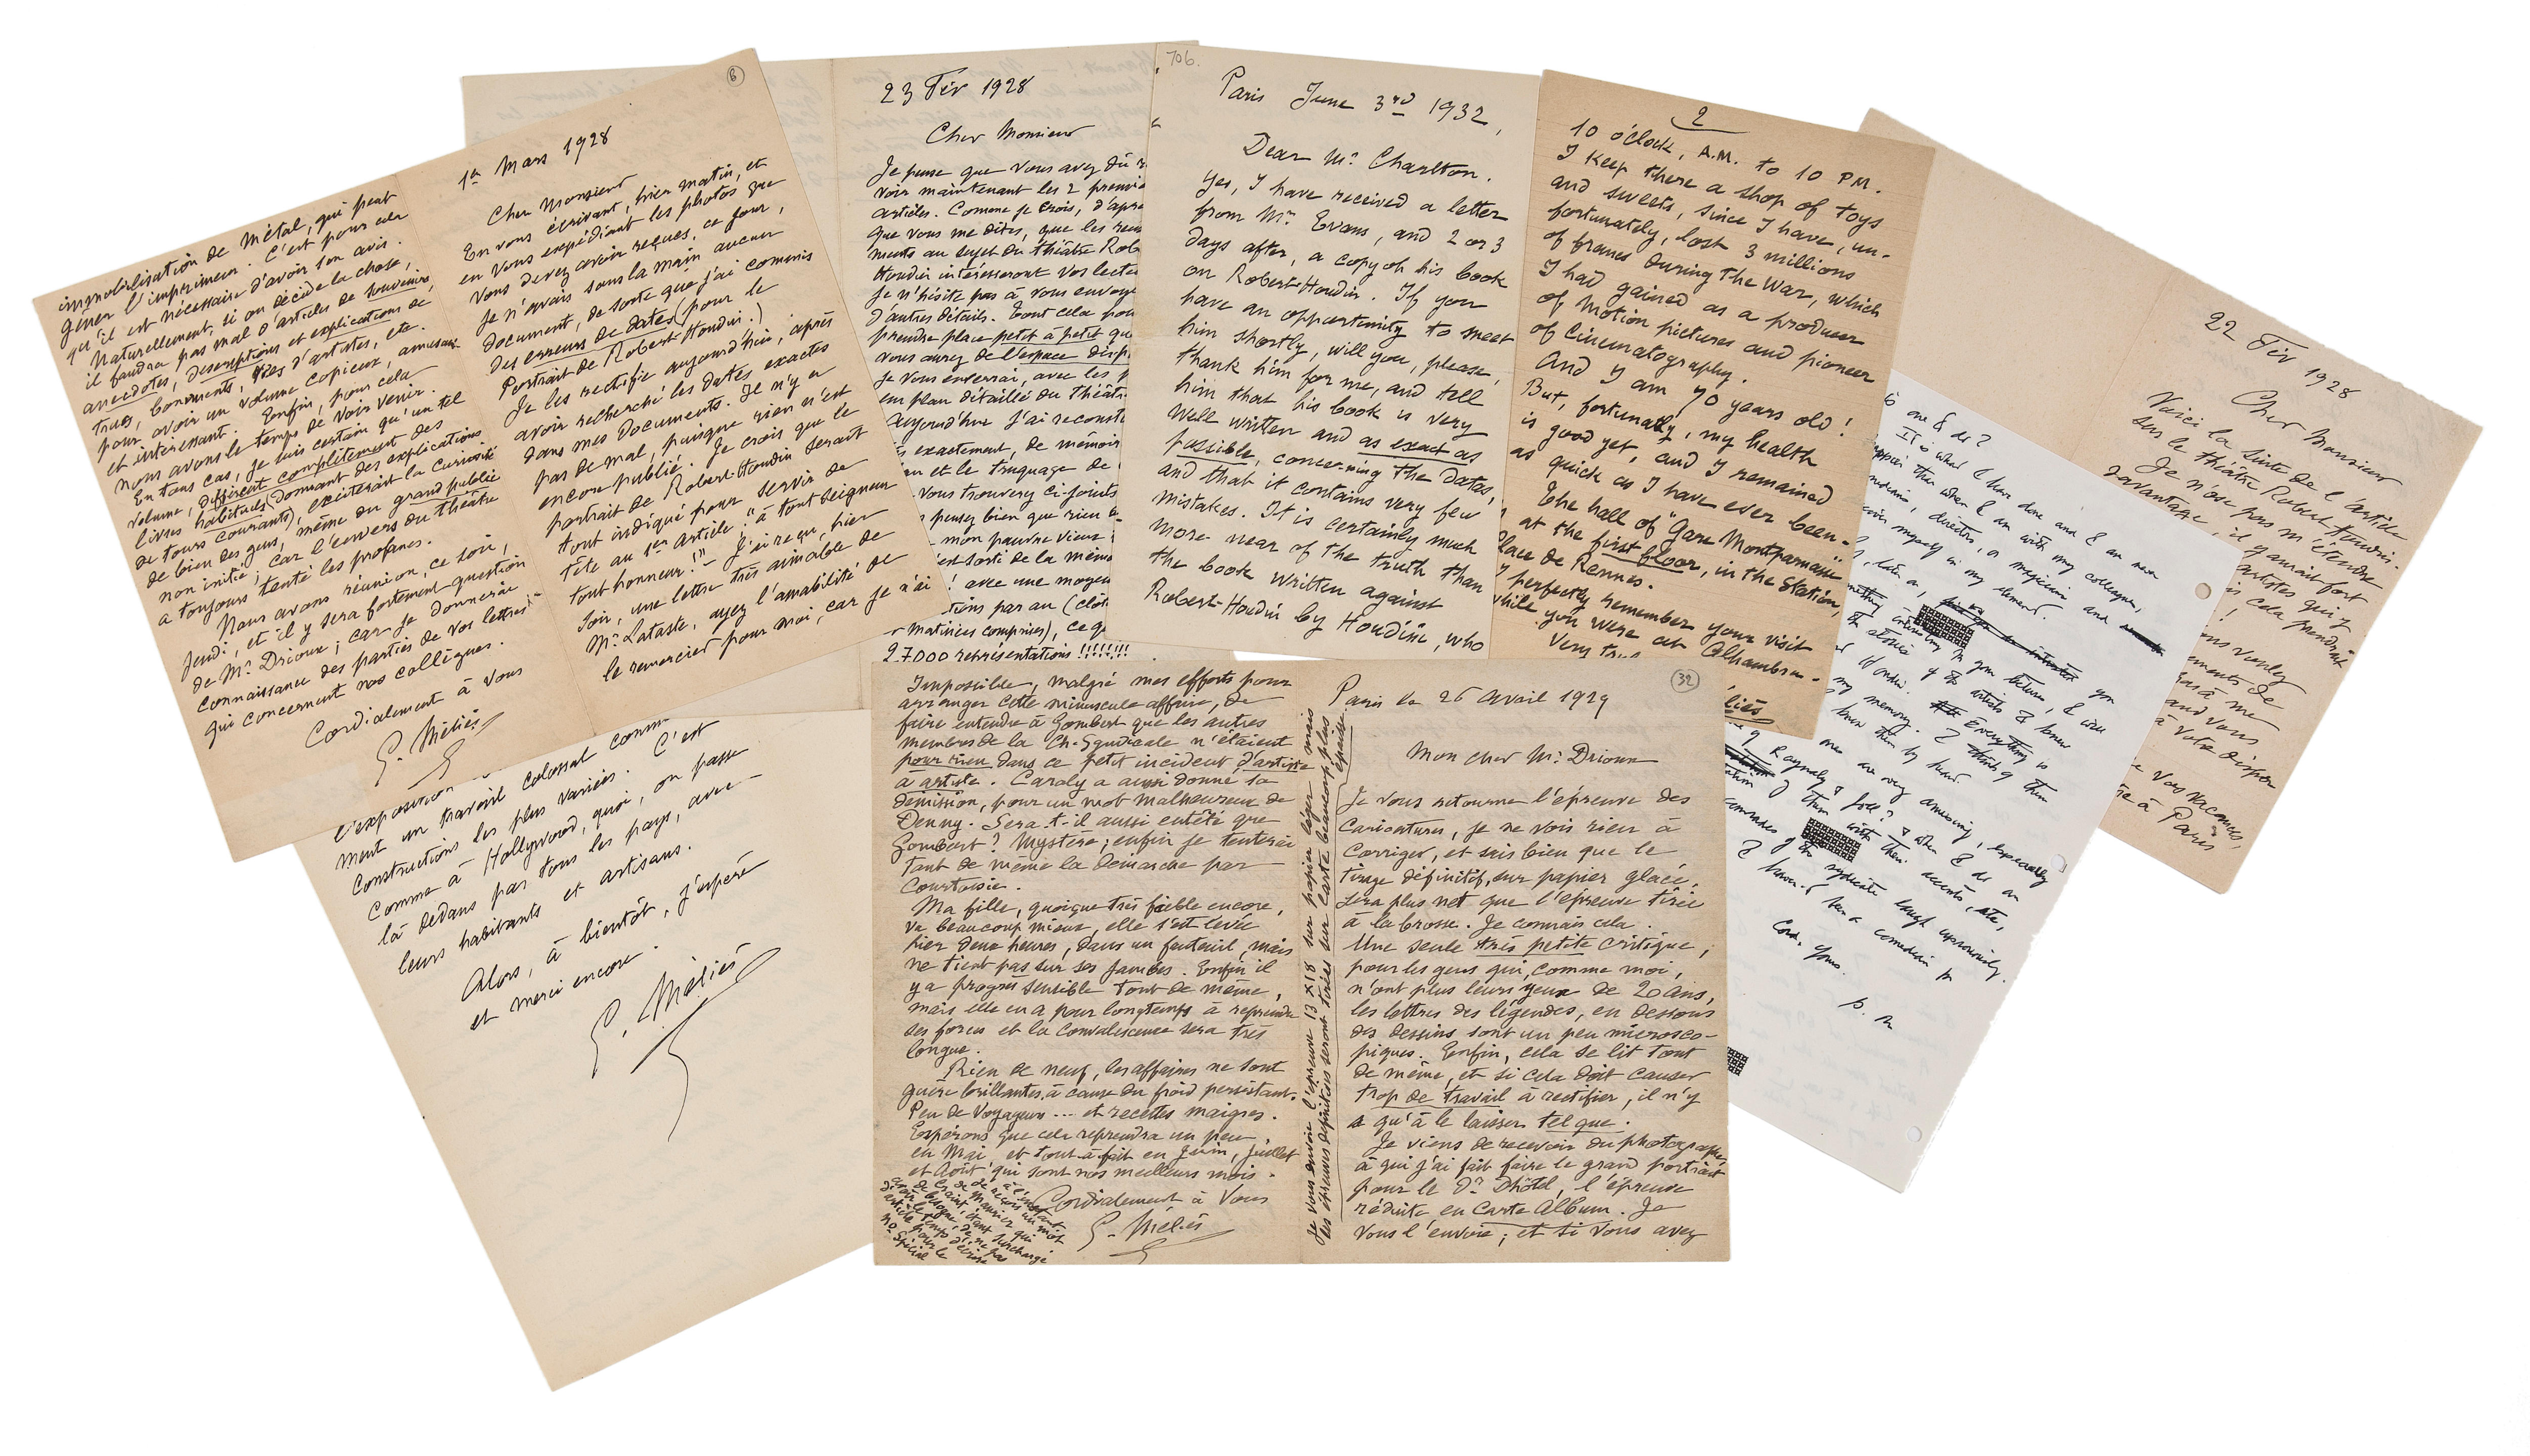 immobilisation de métal, qui peut
gêner l'imprimeur. C'est pour cela
qu'il est nécessaire d'avoir son avis.
Naturellement, si on décide la chose,
il faudra pas mal d'articles de souvenirs,
anecdotes, descriptions et explications de
trucs, boniments, d'artistes, etc.
pour avoir un volume copieux, amusant
et intéressant. Enfin, pour cela
nous avons le temps de voir venir.
En tous cas, je suis certain qu'un tel
volume, différent complètement des
livres habituels (donnant des explications
de tours courants), exciterait la curiosité
de bien des gens, même du grand public
non initié, car l'envers du théâtre
a toujours tenté les profanes.
Nous avons réunion, ce soir,
jeudi, et il y sera fortement question
de Mr. Drioux; car je donnerai
connaissance des parties de vos lettres
qui concernent nos collègues.
Cordialement à vous
G. Méliès
B
1er Mars 1928
Cher Monsieur
En vous écrivant, hier matin, et
en vous expédiant les photos que
vous devez avoir reçues, ce jour,
je n'avais sous la main aucun
document, de sorte que j'ai commis
des erreurs de dates (pour le
Portrait de Robert-Houdin.)
Je les rectifie aujourd'hui, après
avoir recherché les dates exactes
dans mes documents. Il n'y a
pas de mal, puisque rien n'est
encore publié. Je crois que le
portrait de Robert-Houdin serait
tout indiqué pour servir de
tête au 1er article: "à tout seigneur
tout honneur!" - J'ai reçu, hier
soir, une lettre très aimable de
Mr. Lataste, ayez l'amabilité de
le remercier pour moi, car je n'ai
l'exposition
ment un travail colossal comm-
constructions les plus variées. C'est
comme à Hollywood, quoi, on passe
là dedans par tous les pays, avec
leurs habitants et artisans.
Alors, à bientôt, j'espère
et merci encore.
G. Méliès
23 Fév 1928
Cher Monsieur
Je pense que vous avez dû r
voir maintenant les 2 premie
articles. Comme je crois, d'apr
que vous me dites, que les ren
ments au sujet du théâtre Rob
Houdin intéresseront vos lecte
Je n'hésite pas à vous envoye
d'autres détails. Tout cela pou
prendre place petit à petit qu
vous aurez de l'espace disp
Je vous enverrai, avec les p
un plan détaillé du théâtr
Aujourd'hui j'ai reconsti
exactement, de mémoir
et le truquage de
vous trouverez ci-joints
pensez bien que rien
mon pauvre vieux
sorti de la mém
avec une moyen
par an (clôt
matinées comprises), ce q
27.000 représentations !!!!!!!!
706.
Paris June 3rd 1932,
Dear Mr. Charlton.
Yes, I have received a letter
from Mr. Evans, and 2 or 3
days after, a copy of his book
on Robert-Houdin. If you
have an opportunity to meet
him shortly, will you, please,
thank him for me, and tell
him that his book is very
well written and as exact as
possible, concerning the dates,
and that it contains very few
mistakes. It is certainly much
more near of the truth than
the book written against
Robert-Houdin by Houdini, who
2
10 o'clock, A.M. to 10 PM.
I keep there a shop of toys
and sweets, since I have, un-
fortunately, lost 3 millions
of francs during the war, which
I had gained as a producer
of motion pictures and pioneer
of Cinematography.
And I am 70 years old!
But, fortunately, my health
is good yet, and I remained
as quick as I have ever been-
The hall of "Gare Montparnasse"
at the first floor, in the Station,
place de Rennes.
perfectly remember your visit
while you were at Alhambra-
Very tru
liès
22 Fév 1928
Cher Monsieur
Voici la suite de l'article
sur le théâtre Robert-Houdin.
Je n'ose pas m'étendre
davantage, il y aurait fort
artistes qui y
cela prendrait
veuley
ements de
à me
and vous
à votre dispos
vos vacances,
à Paris
one & do?
It is what I have done and I am never
happier than when I am with my colleagues,
directors, or magicians and
myself in my element.
later on,
you
return, I will
the stories of the artists I knew
Houdin. Everything is
my memory. I think of them
know them by heart.
are very amusing, especially
Raynaly & foll? & when I do an
of them with their accents, etc,
comrades of the syndicate laugh uproariously.
a comedian
Cord. Yours.
Impossible, malgré mes efforts pour
arranger cette minuscule affaire, de
faire entendre à Gombert que les autres
membres de la Ch. Syndicale n'étaient
pour rien dans ce petit incident d'artiste
à artiste. Caroly a aussi donné sa
démission, pour un mot malheureux de
Denny. Sera-t-il aussi entêté que
Gombert? Mystère; enfin je tenterai
tout de même la démarche par
courtoisie.
Ma fille, quoique très faible encore,
va beaucoup mieux, elle s'est levée
hier deux heures, dans un fauteuil, mais
ne tient pas sur ses jambes. Enfin il
y a progrès sensible tout de même,
mais elle en a pour longtemps à reprendre
ses forces et la convalescence sera très
longue.
Rien de neuf, les affaires ne sont
guère brillantes, à cause du froid persistant.
Peu de voyageurs --- et recettes maigres.
Espérons que cela reprendra un peu
en Mai, et tout à fait en Juin, juillet
et Août qui sont nos meilleurs mois.
Cordialement à vous
G. Méliès
à l'instant.
de reçois un mot
de de Maurier qui
surchargé
de besogne, de ne pas
avoir le temps d'écrire
article pour le
no spécial
Je vous envoie l'épreuve 13 x 18 sur papier léger mais
les épreuves définitives seront tirées sur carte beaucoup plus
épaisse
32
Paris le 26 Avril 1929
Mon cher Mr. Drioux
Je vous retourne l'épreuve des
caricatures, je ne vois rien à
corriger, et sais bien que le
tirage définitif, sur papier glacé,
sera plus net que l'épreuve tirée
à la brosse. Je connais cela.
Une seule très petite critique,
pour les gens qui, comme moi,
n'ont plus leurs yeux de 20 ans,
les lettres des légendes, en dessous
des dessins sont un peu microsco-
piques. Enfin, cela se lit tout
de même, et si cela doit causer
trop de travail à rectifier, il n'y
a qu'à le laisser tel que.
Je viens de recevoir du photographe,
à qui j'ai fait faire le grand portrait
pour le Dr. Dhôtel, l'épreuve
réduite en Carte Album. Je
vous l'envoie; et si vous avez